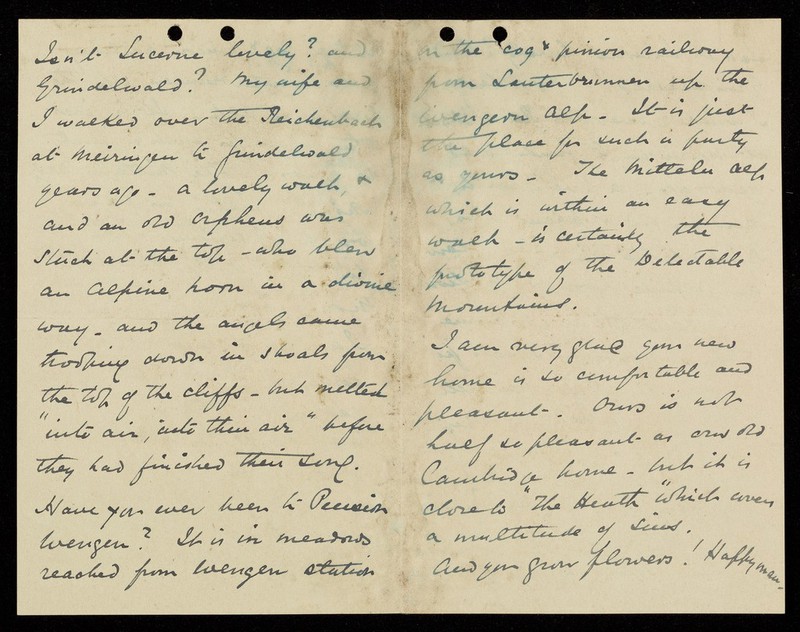 Isn't Lucerne lovely? and
Grindelwald? My wife and
I walked over the Reichenbach
at Meiringen to Grindelwald
years ago - a lovely walk, &
and an old Orpheus was
stuck at the top - who blew
an Alpine horn in a divine
way - and the angels came
trooping down in shoals from
the top of the cliffs - but melted
"into air, into thin air" before
they had finished their song.
Have you ever been to Pension
Wengen? It is in meadows
reached from Wengen station
on the "cog & pinion railway
from Lauterbrunnen up the
Wengern Alp - It is just
the place for such a party
as yours - The Mitteln Alp
which is within an easy
walk - is certainly the
prototype of the Delectable
Mountains.
I am very glad your new
home is so comfortable and
pleasant - Ours is not
half so pleasant as our old
Cambridge home - but it is
close to "The Heath" which covers
a multitude of sins.
And you grow flowers! Happy man -